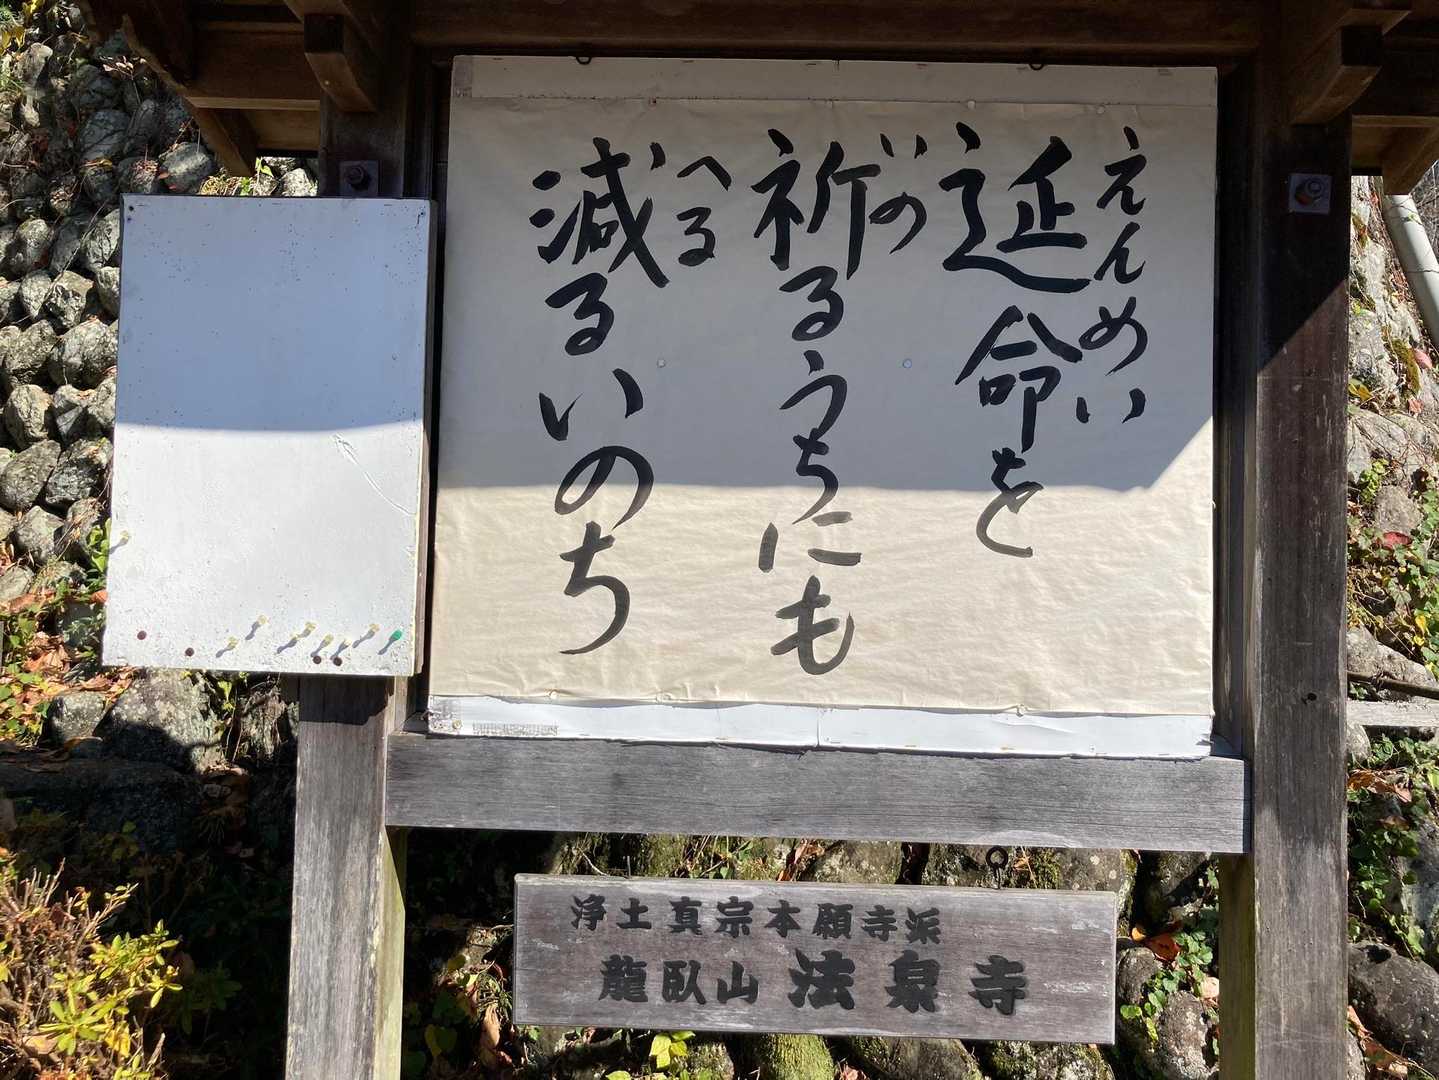 えんめい
延命を
いの
祈るうちにも
へる
減るいのち
浄土真宗本願寺派
龍臥山 法泉寺